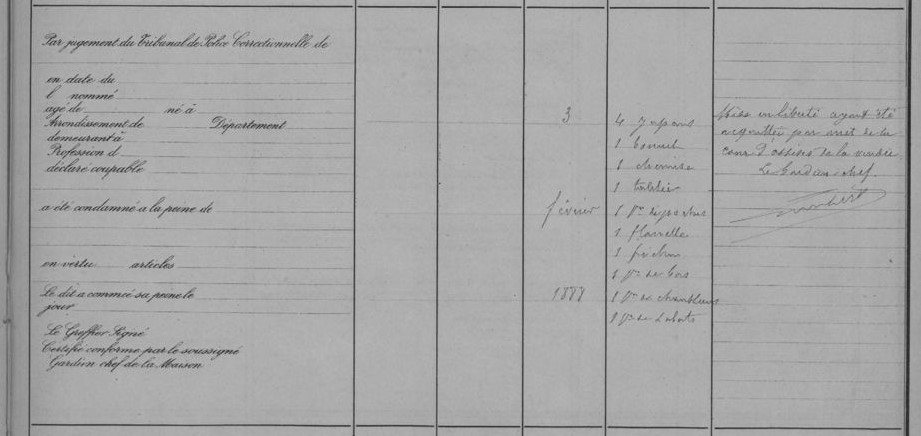 Par jugement du Tribunal de Police Correctionnelle de
en date du
l nommé
agé de né à
Arrondissement de Département
demeurant à
Profession d
déclaré coupable
a été condamné a la peine de
en vertu articles
Le dit a commcé sa peine le
jour
Le Greffier Signé
Certifié conforme par le soussigné
Gardien chef de la Maison
3
février
1888
4 jupons
1 bonnet
1 chemise
1 tablier
1 flanelle
1 fichu
1 Pre de bas
1 Pre de
1 Pre de sabots
Mise en liberté ayant été
acquittée par arrêt de la
cour d'assises de la vendée
Le Gardien chef